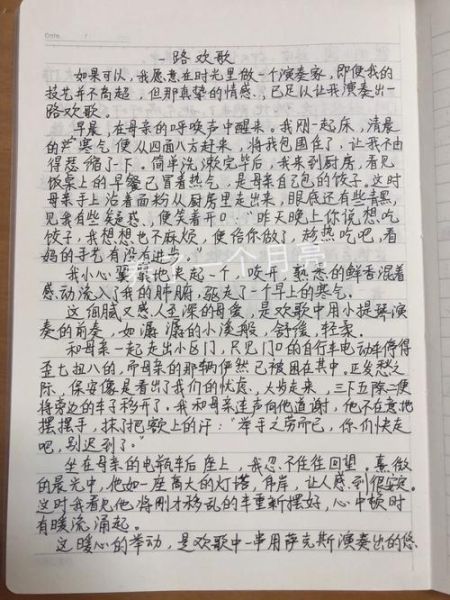 Date. /
一路欢歌
如果可以，我愿意在时光里做一个演奏家，即使我的
技艺并不高超，但那真挚的情感，已足以让我演奏出一
路欢歌。
早晨，在母亲的呼唤声中醒来。我刚一起床，清晨
的寒气便从四面八方赶来，将我包围住了，让我不由
得瑟缩了一下。简单洗漱完毕后，我来到厨房，看见
饭桌上的早餐已冒着热气，是母亲自己包的饺子。这时
母亲手上沾着面粉从厨房里走出来，眼底还有些青黑，
见我有些疑惑，便笑着开口：“昨天晚上你说想吃
饺子，我想想也不麻烦，便给你做了，趁热吃吧，看
妈的手艺有没有进步。”
我小心翼翼地夹起一个，咬开，熟悉的鲜香混着
感动流入了我的肺腑，驱走了一个早上的寒气。
这细腻又感人至深的母爱，是欢歌中用小提琴演
奏的前奏，如潺潺的小溪般，舒缓，轻柔。
和母亲一起走出小区门，只见门口的自行车电动车停得
歪七扭八的，而母亲的那辆俨然已被困在其中。正发愁之
际，保安像是看出了我们的忧虑，大步走来，三下五除二便
将旁边的车子移开了。我和母亲连声向他道谢，他不在意地
摆摆手，抹了把额上的汗：“举手之劳而已，你们快走
吧，别迟到了。”
坐在母亲的电瓶车后座上，我忍不住往回望。熹微
的晨光中，他如一座高大的灯塔，伫岸，让人感到很安定。
这时我看见他将刚才移乱的车重新摆好，心中顿时
有暖流涌起。
这暖心的举动，是欢歌中一串用萨克斯演奏出的悠
个月亮